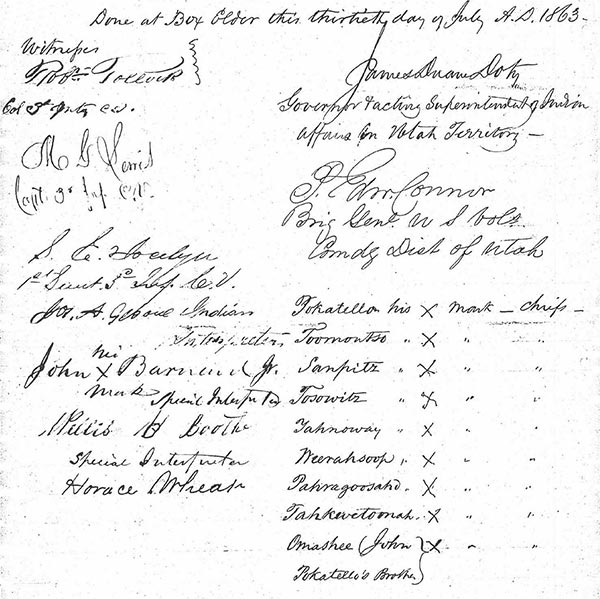 Done at Box Elder this thirtieth day of July A.D. 1863.
Witnesses
Robt. Pollock
Col 3d Infty C.V.
M G Lewis
Capt. 3d Inf. C.V.
S. E. Jocelyn
1st Lieut 3d Inf. C.V.
Jos. A. Gebow Indian
Interpreter
John his X mark Barnard Jr.
Special Interpreter
Willis H Boothe
Special Interpreter
Horace Wheat
James Duane Doty
Governor & acting Superintendent of Indian
Affairs in Utah Territory —
P. Edw. Connor
Brig Genl. U S Vols.
Comdg Dist of Utah
Pokatello his X mark — chief —
Toomontso " X " "
Sanpitz " X " "
Tosowitz " X " "
Yahnoway " X " "
Weerahsoop " X " "
Pahragoosahd " X " "
Tahkewetoonah " X " "
Omashee (John X " "
Pokatello's Brother)